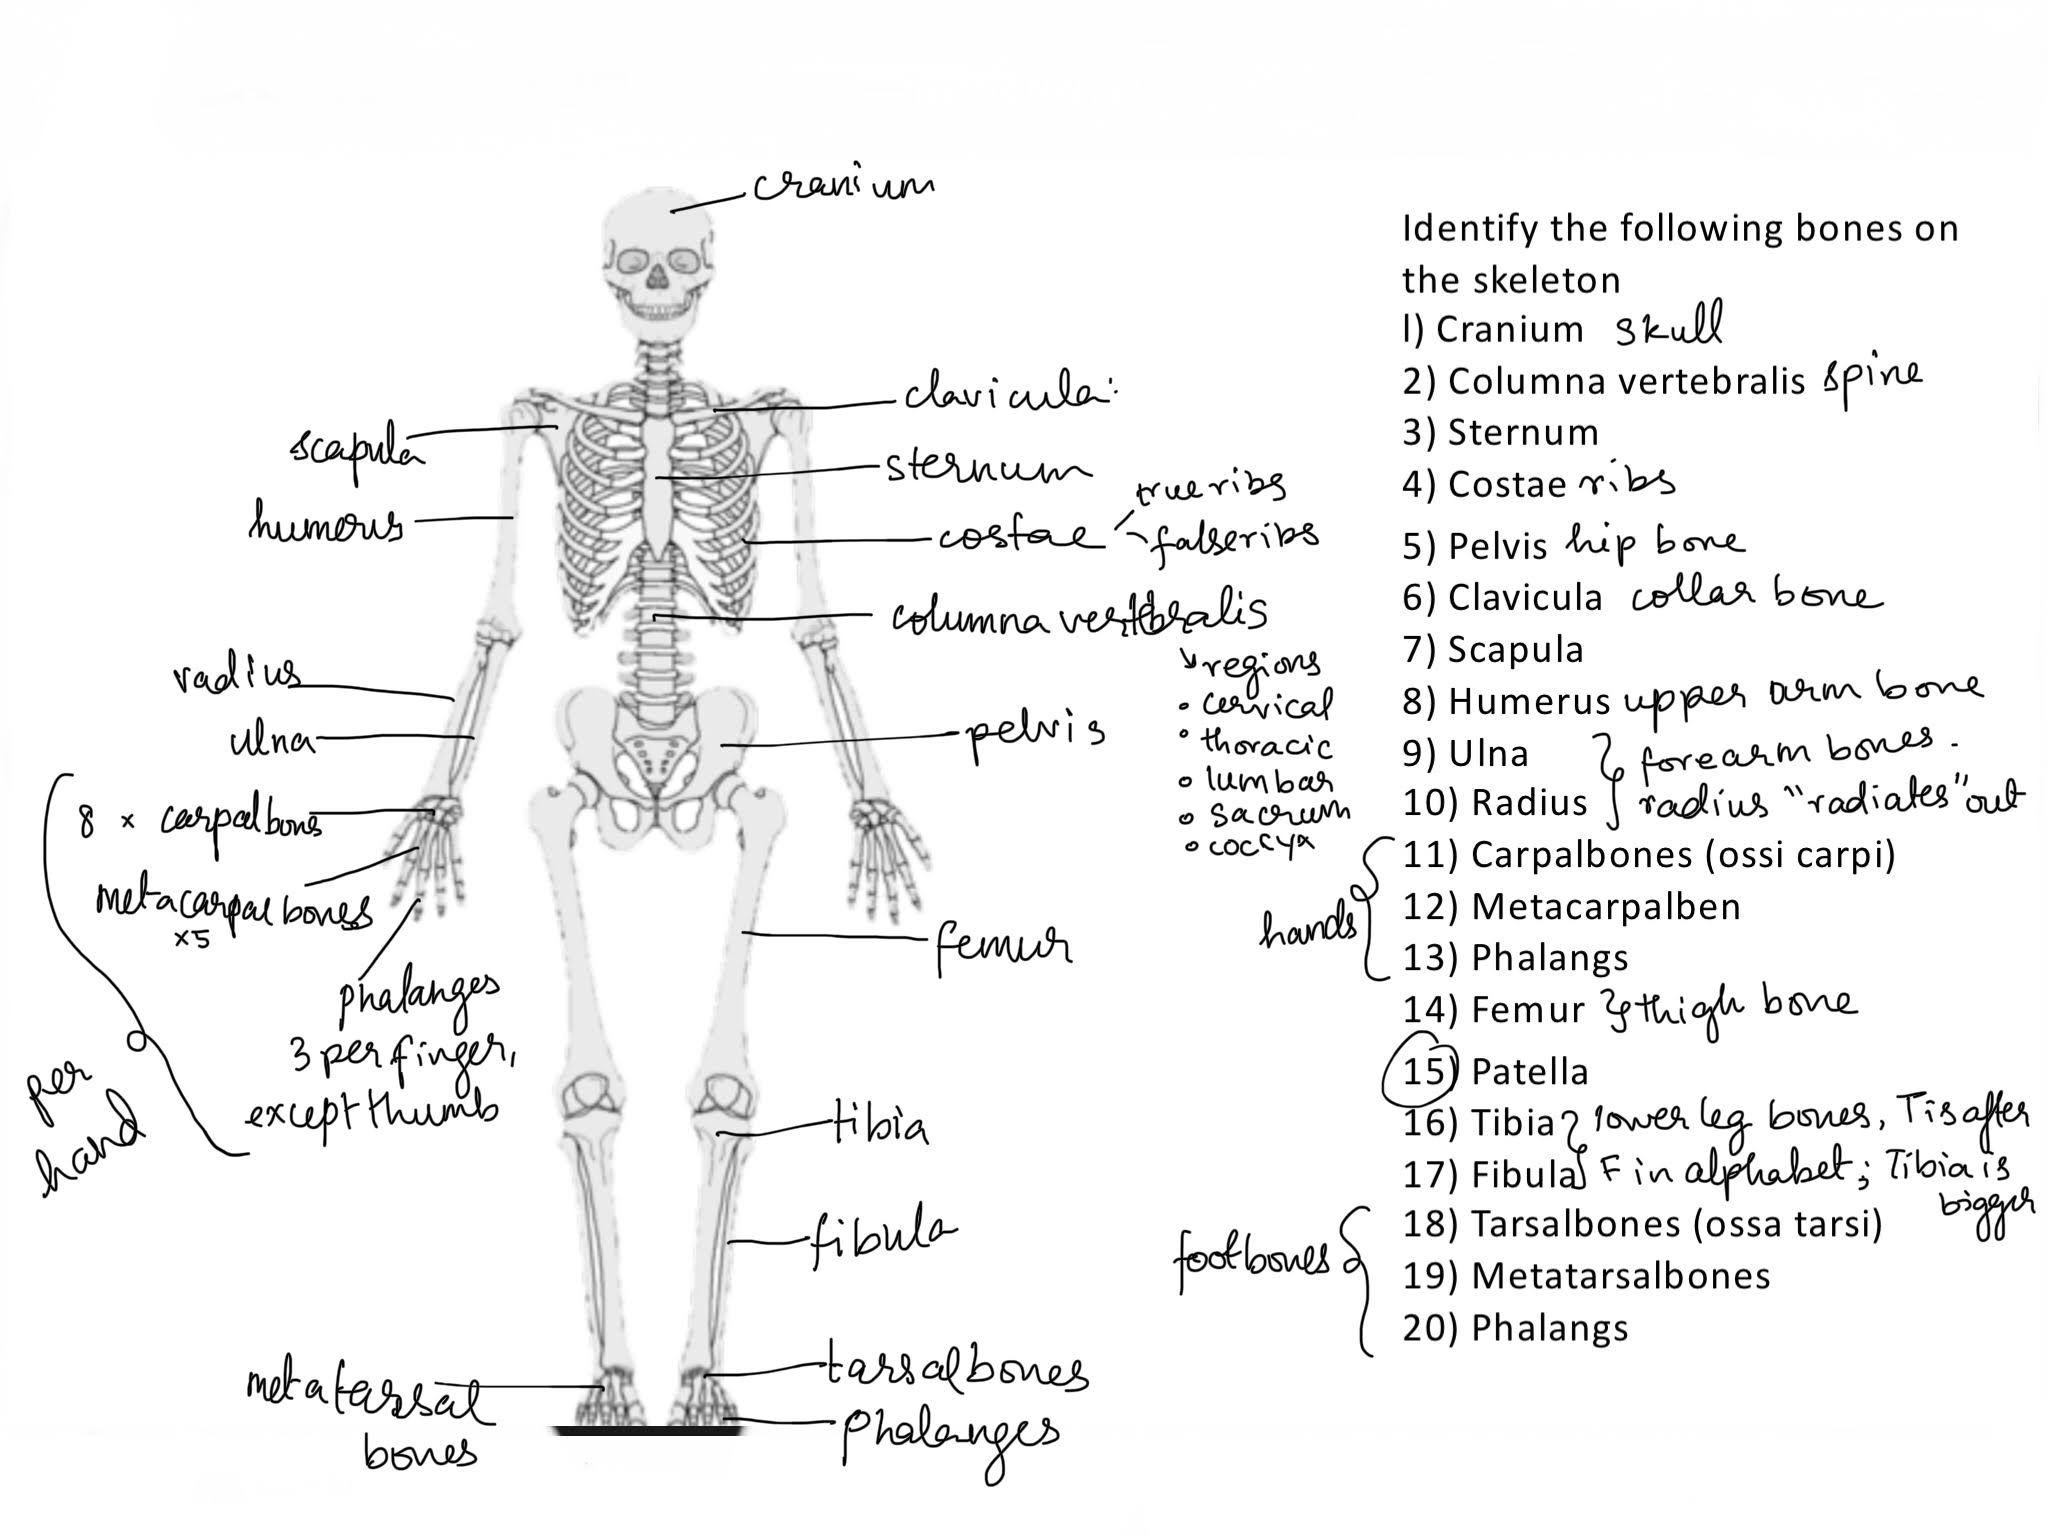 cranium
clavicula:
scapula
sternum
true ribs
humerus
costae
false ribs
columna vertebralis
regions
radius
• cervical
pelvis
ulna
• thoracic
• lumbar
8 x carpal bones
• sacrum
• coccyx
metacarpal bones
x5
femur
phalanges
3 per finger,
except thumb
per
hand
tibia
fibula
tarsal bones
metatarsal
bones
phalanges
Identify the following bones on
the skeleton
l) Cranium skull
2) Columna vertebralis spine
3) Sternum
4) Costae ribs
5) Pelvis hip bone
6) Clavicula collar bone
7) Scapula
8) Humerus upper arm bone
9) Ulna forearm bones.
10) Radius radius "radiates" out
11) Carpalbones (ossi carpi)
hands
12) Metacarpalben
13) Phalangs
14) Femur thigh bone
15) Patella
16) Tibia lower leg bones, T is after
17) Fibula F in alphabet; Tibia is
bigger
18) Tarsalbones (ossa tarsi)
foot bones
19) Metatarsalbones
20) Phalangs